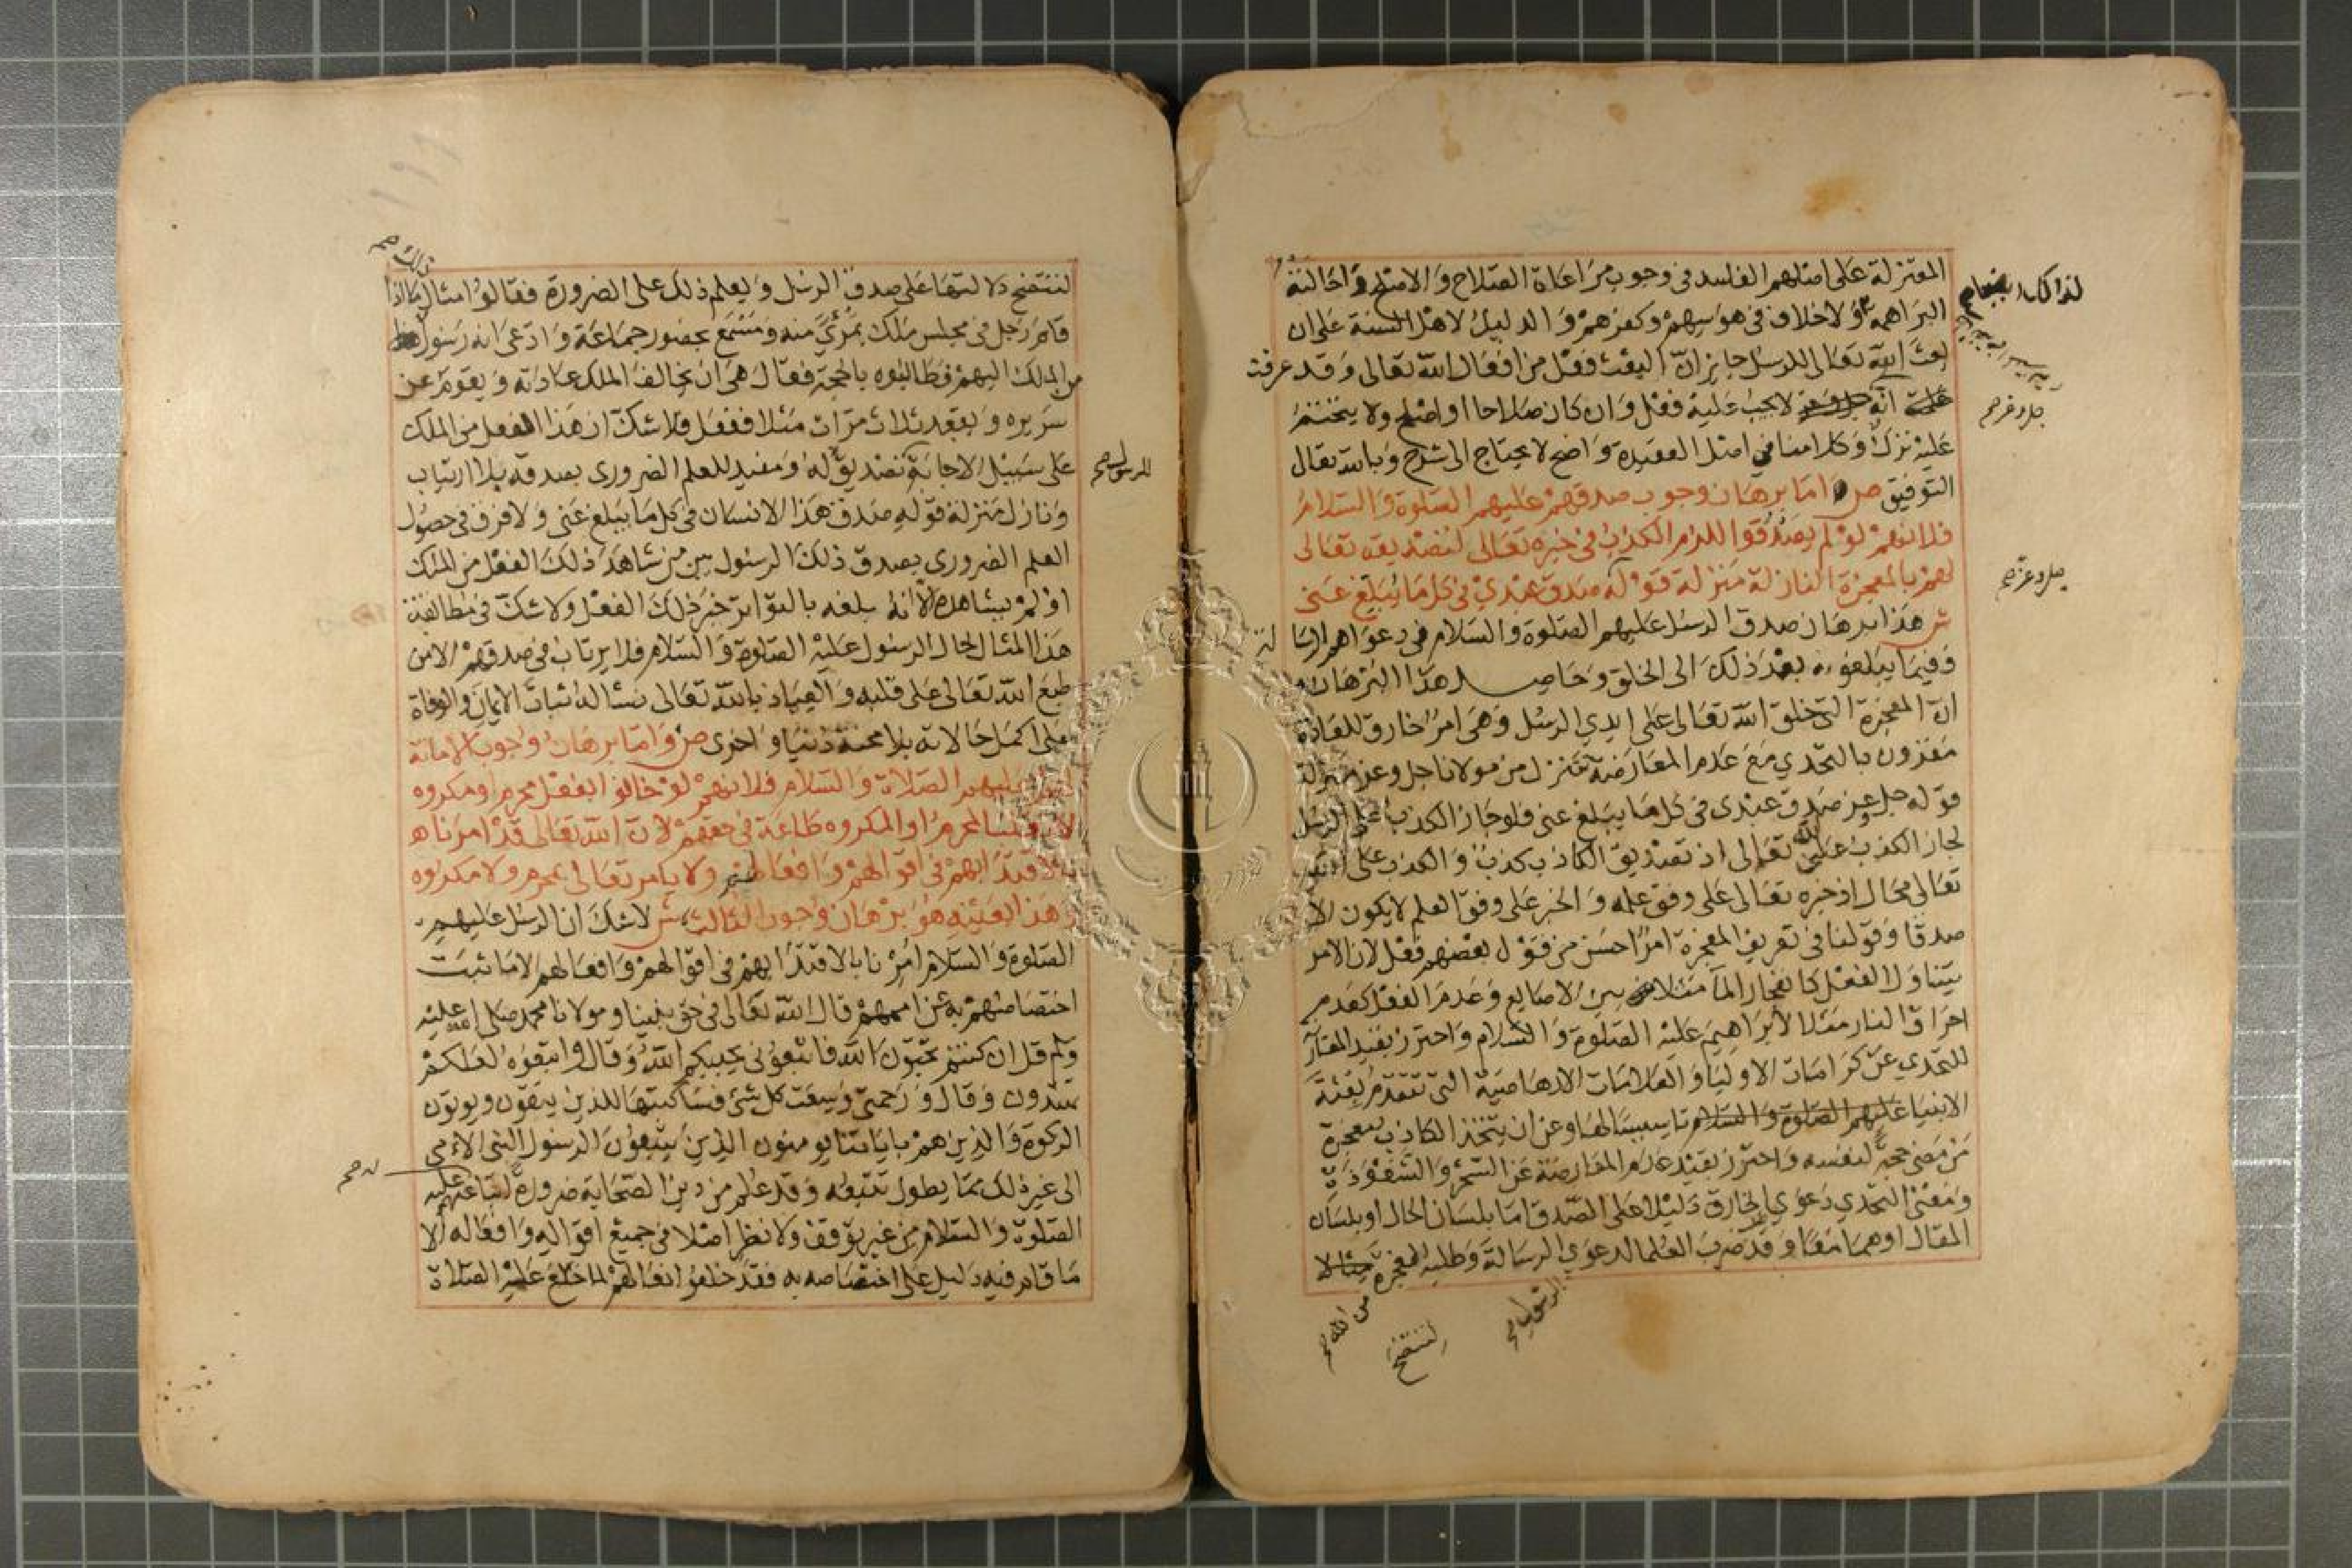 المعتزلة على اصلهم الفاسد في وجوب مراعاة الصلاح والاصلح واحالته
البراهمة ولا خلاف في هوسهم وكفرهم والدليل لاهل السنة على ان
بعث الله تعالى للرسل جايز ان البعث فعل من افعال الله تعالى وقد عرفت
انه لا يجب عليه فعل وان كان صلاحا او اصلح ولا يتحتم
عليه ترك وكلامنا في اصل العقيدة واضح لا يحتاج الى شرح وبالله تعالى
التوفيق ص واما برهان وجوب صدقهم عليهم الصلوة والسلام
فلانهم لو لم يصدقوا للزم الكذب في خبره تعالى لتصديقه تعالى
لهم بالمعجزة النازلة منزلة قوله صدق عبدي في كل ما يبلغ عني
ش هذا برهان صدق الرسل عليهم الصلوة والسلام في دعواهم الرسا لة
وفيما يبلغونه بعد ذلك الى الخلق وحاصل هذا البرهان
ان المعجزة التي خلق الله تعالى على ايدي الرسل وهي امر خارق للعادة
مقرون بالتحدي مع عدم المعارضة تتنزل من مولانا جل وعز منزلة
قوله جل وعز صدق عبدي في كل ما يبلغ عني فلو جاز الكذب على الرسل
لجاز الكذب على الله تعالى اذ تصديق الكاذب كذب والكذب على الله
تعالى محال اذ خبره تعالى على وفق علمه والخبر على وفق العلم لا يكون الا
صدقا وقولنا في تعريف المعجزة امر احسن من قول بعضهم فعل لان الامر
يتناول الفعل كانفجار الما مثلا من بين الاصابع وعدم الفعل كعدم
احراق النار مثلا لابراهيم عليه الصلوة والسلام واحترز بقيد المقارن
للتحدي عن كرامات الاوليا والعلامات الارهاصية التي تتقدم بعثة
الانبيا عليهم الصلوة والسلام تاسيسا لها وعن ان يتخذ الكاذب معجزة
من مضى حجة لنفسه واحترز بقيد عدم المعارضة عن السحر والشعوذة
ومعنى التحدي دعوي الخارق دليلا على الصدق اما بلسان الحال او بلسان
المقال او هما معا وقد ضرب العلما لدعوي الرسالة وطلبه المعجزة مثالا
جل وعز صح
جل وعز صح
الرسول صح
من الله صح
لتتضح
ذلك صح
لتتضح دلالتها على صدق الرسل ويعلم ذلك على الضرورة فقالوا مثال ما اذا
قام رجل في مجلس ملك بمرئ منه ومسمع بحضور جماعة وادعى انه رسول
من الملك اليهم فطالبوه بالحجة فقال هي ان يخالف الملك عاداته ويقوم عن
سريره ويقعد ثلاث مرات مثلا ففعل فلا شك ان هذا الفعل من الملك
على سبيل الاجابة تصديق له ومفيد للعلم الضروري بصدقه بلا ارتياب
ونازل منزلة قوله صدق هذا الانسان في كل ما يبلغ عني ولا فرق في حصول
العلم الضروري بصدق ذلك الرسول بين من شاهد ذلك الفعل من الملك
او لم يشاهده الا انه بلغه بالتواتر خبر ذلك الفعل ولا شك في مطابقة
هذا المثال لحال الرسول عليه الصلوة والسلام فلا يرتاب في صدقهم الا من
طبع الله تعالى على قلبه والعياذ بالله تعالى نساله ثبات الايمان والوفاة
على اكمل حالاته بلا محنة دنيا واخرى ص واما برهان وجوب الامانة
لهم عليهم الصلاة والسلام فلانهم لو خانوا بفعل محرم او مكروه
لانقلب المحرم او المكروه طاعة في حقهم لان الله تعالى قد امرنا
بالاقتدا بهم في اقوالهم وافعالهم ولا يامر تعالى بمحرم ولا مكروه
وهذا بعينه هو برهان وجوب الثالث ش لا شك ان الرسل عليهم
الصلوة والسلام امرنا بالاقتدا بهم في اقوالهم وافعالهم الا ما ثبت
اختصاصهم به عن اممهم قال الله تعالى في حق نبينا ومولانا محمد صلى الله عليه
وسلم قل ان كنتم تحبون الله فاتبعوني يحببكم الله وقال واتبعوه لعلكم
تهتدون وقال ورحمتي وسعت كل شئ فساكتبها للذين يتقون ويوتون
الزكوة والذين هم باياتنا يومنون الذين يتبعون الرسول النبي الامي
الى غير ذلك مما يطول تتبعه وقد علم من دين الصحابة ضرورة اتباعهم عليه
الصلوة والسلام من غير توقف ولا نظر اصلا في جميع اقواله وافعاله الا
ما قام فيه دليل على اختصاصه به فقد خلعوا نعالهم لما خلع عليه الصلاة
للرسول صح
له صح